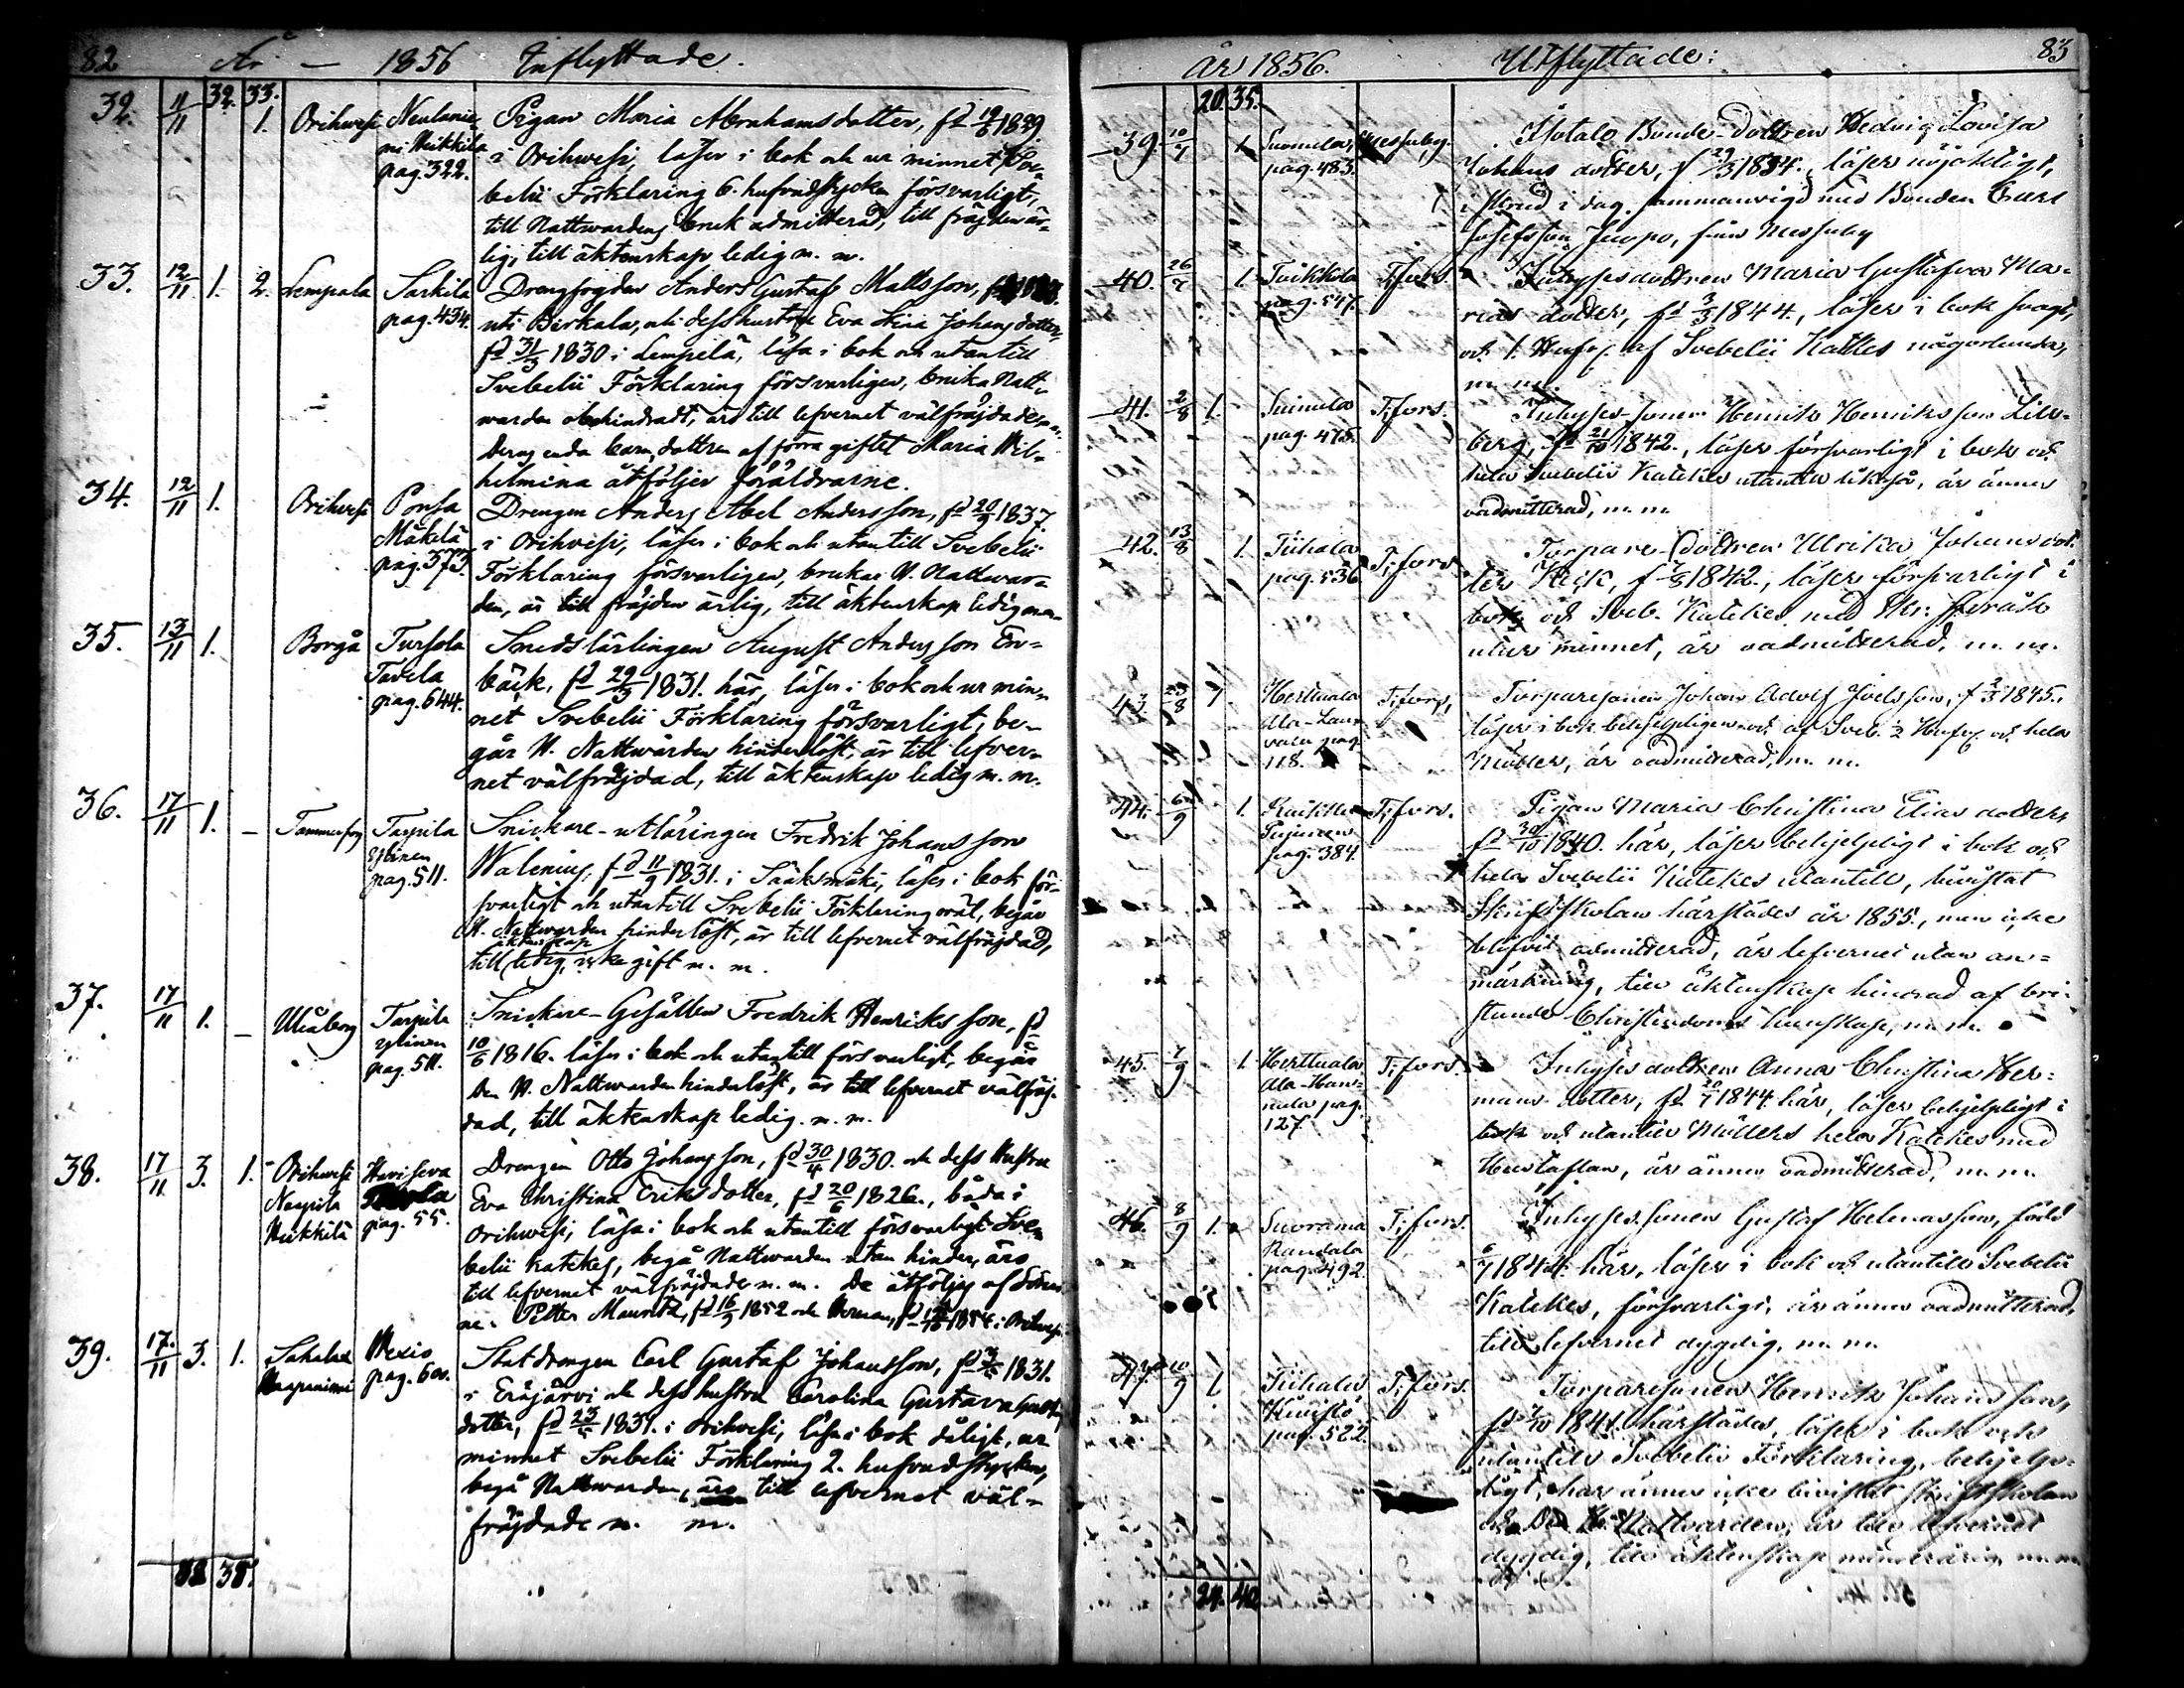 82 År — 1856 Inflyttade.
32. 33.
32. 11/11 1. Orihvesi Neulanie
mi Heikkilä
pag. 322.
Pigan Maria Abrahamsdotter, fd 1829
i Orihvesi, läser i bok och ur minnet Sve-
belii Förklaring 6. hufvudstycken försvarligt,
till Nattvardens bruk admitterad, till frägden är-
lig, till äktenskap ledig m. m.
33. 12/11 1. 2. Lempala Sarkila
pag. 434.
Drengfogden Anders Gustaf Mattsson,
uti Birkala, och dess hustru Eva Lisa Johansdotter,
fd 31/3 1830 i Lempelä, läsa i bok och utantill
Svebelii Förklaring försvarligen, bruka Natt-
warden obehindradt, äro till lefvernet välfräjdade m. m.
Deras enda barn, dottren af förra giftet Maria Wil-
helmina åtföljer föräldrarne.
34. 12/11 1. Orihvesi Ponsa
Mäkelä
pag. 373.
Drengen Anders Abel Andersson, fd 20/9 1837.
i Orihvesi, läser i bok och utantill Svebelii
Förklaring försvarligen, brukar H. Nattvar-
den, är till fräjden ärlig, till äktenskap ledig m. m.
35. 13/11 1. Borgå Tursola
Tavela
pag. 644.
Smedslärlingen August Andersson En-
bäck, fd 29/3 1831. här, läser i bok och ur min-
net Svebelii Förklaring försvarligt, be-
går H. Nattwarden hinderlöst, är till lefver-
net välfräjdad, till äktenskap ledig m. m.
36. 17/11 1. — Tammerfors Tarpila
Eskinen
pag. 511.
Snickare-utläringen Fredrik Johansson
Walenius, fd 11/9 1831. i Sääksmäki, läser i bok för-
svarligt och utantill Svebelii Förklaring väl, begår
H. Nattwarden hinderlöst, är till lefvernet välfräjdad,
äktenskap
till ledig, icke gift m. m.
37. 17/11 1. — Uleåborg Tarpila
pag. 511.
Snickare-Gesällen Fredrik Henriksson, fd
10/6 1816. läser i bok och utantill försvarligt, begår
den H. Nattwarden hinderlöst, är till lefvernet välfräj-
dad, till äktenskap ledig. m. m.
38. 17/11 3. 1. Orihvesi
Naapila
Heikkilä
Haviseva
pag. 55.
Drengen Otto Johansson, fd 30/4 1830. och dess Hustru
Eva Christina Eriksdotter, fd 20/6 1826., båda i
Orihvesi, läsa i bok och utantill försvarligt Sve-
belii Katekes, begå Nattwarden utan hinder, äro
till lefvernet välfräjdade m. m. De åtföljas af Söner-
ne. Petter Mauritz, fd 16/9 1852 och Herman, fd 1854 i Orihvesi.
39. 17/11 3. 1. Sahalax
Haapaniemi
Wexio
pag. 600.
Statdrengen Carl Gustaf Johansson, fd 1831.
i Eräjärvi och dess hustru Carolina Gustava Gustafs
dotter, fd 1831. i Orihvesi, läsa i bok dåligt, ur
minnet Svebelii Förklaring 2. hufvudstycken,
begå Nattwarden, äro till lefvernet väl-
fräjdade m. m.
38.
år 1856. Utflyttade: 83
20. 35.
39 10/7 1. Suomela,
pag. 483.
Messuby.
Åbotals Bonde-Dottren Hedvig Lovisa
Johans dotter, f 29/3 1834., läser nöjaktigt,
i dag sammanvigd med Bonden Carl
Josefsson Juopo, från Messuby
40. 26/7 1. Tuikkola
pag. 547.
T;fors.
Inhysesdottren Maria Gustafva Ma-
rias dotter, fd 3/3 1844., läser i bok svagt,
och 1. Hufvs. af Svebelii Katkes någorlunda,
m. m.
41. 2/8 1. Suinula
pag. 475.
T;fors.
Inhyses-sonen Henrik Henriksson Lill-
berg, fd 21/10 1842., läser försvarligt i bok och
hela Svebelii Katekes utantill likaså, är ännu
oadmitterad, m. m.
42. 13/8 1. Tiihala
pag. 536
T;fors
Torpare-Dottren Ulrika Johansdot-
ter f 1842., läser försvarligt i
bok och Sveb. Katekes med
utur minnet, är oadmitterad, m. m.
43. 23/8 1. Herttuala
Ala-
pag.
118.
T;fors,
Torparesonen Johan Adolf Joelsson, f 1845.
läser i bok behjelpligen och af Sveb. 1/2 Hufvs. och hela
Möller, är oadmitterad, m. m.
44. 6/9 1.
pag. 384.
T;fors.
Pigan Maria Christina Elias dotter,
fd 30/10 1840. här, läser behjelpligt i bok och
hela Svebelii Katekes utantill, bevistat
Skriftskolan härstädes år 1855., men icke
blifvit admitterad, är lefvernet utan an-
märkning, till äktenskap hindrad af bri-
stande Christendoms kunskap, m. m.
45. 7/9 1. Herttuala
Ala-
pag.
127
T;fors.
Inhyses dottren Anna Christina Her-
mans dotter, fd 20/7 1844. här, läser behjelpligt i
bok och utantill Möllers hela Katekes med
Hustaflan, är ännu oadmitterad, m. m.
46. 8/9 1. Suorama
Randala
pag. 492.
T;fors.
Inhysessonen Gustaf Helenasson, född
1844. här, läser i bok och utantill Svebelii
Katekes, försvarligt, är ännu oadmitterad,
till lefvernet dygdig, m. m.
47. 10/9 1. Tiihala
Knuistö
pag. 522.
T;fors.
Torparesonen Henrik Johansson,
fd 1841. härstädes, läser i bok och
utantill Svebelii Förklaring, behjelp-
ligt, har ännu icke bevistat Skriftskolan
och Den H. Nattvarden, är till lefvernet
dygdig, till äktenskap minderårig m. m.
24. 40.